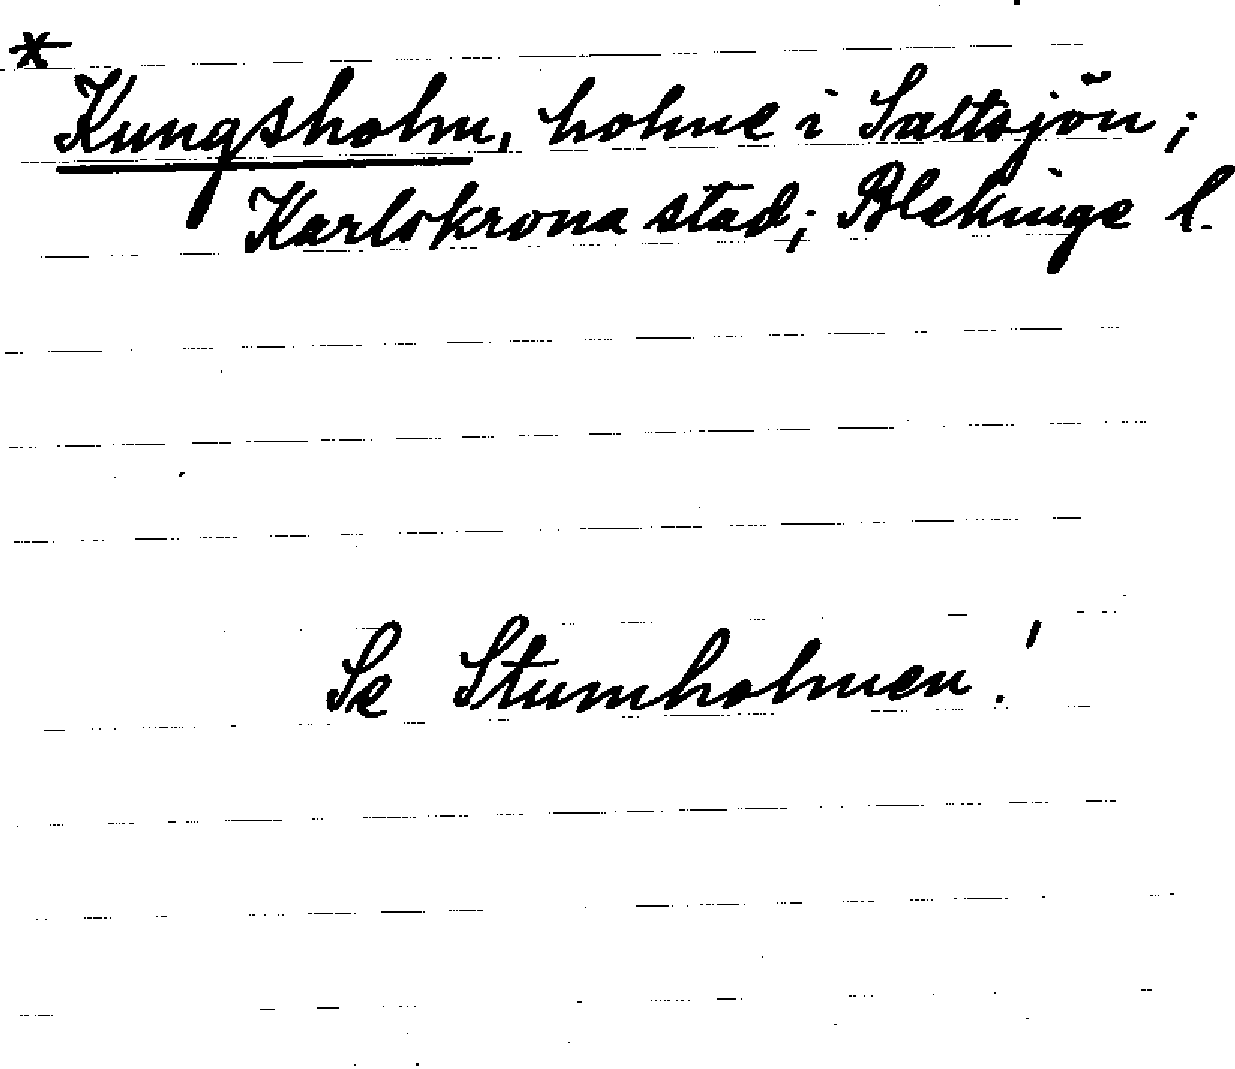 * Kungsholm, holme i Saltsjön;
Karlskrona stad; Blekinge l.
Se Stumholmen!